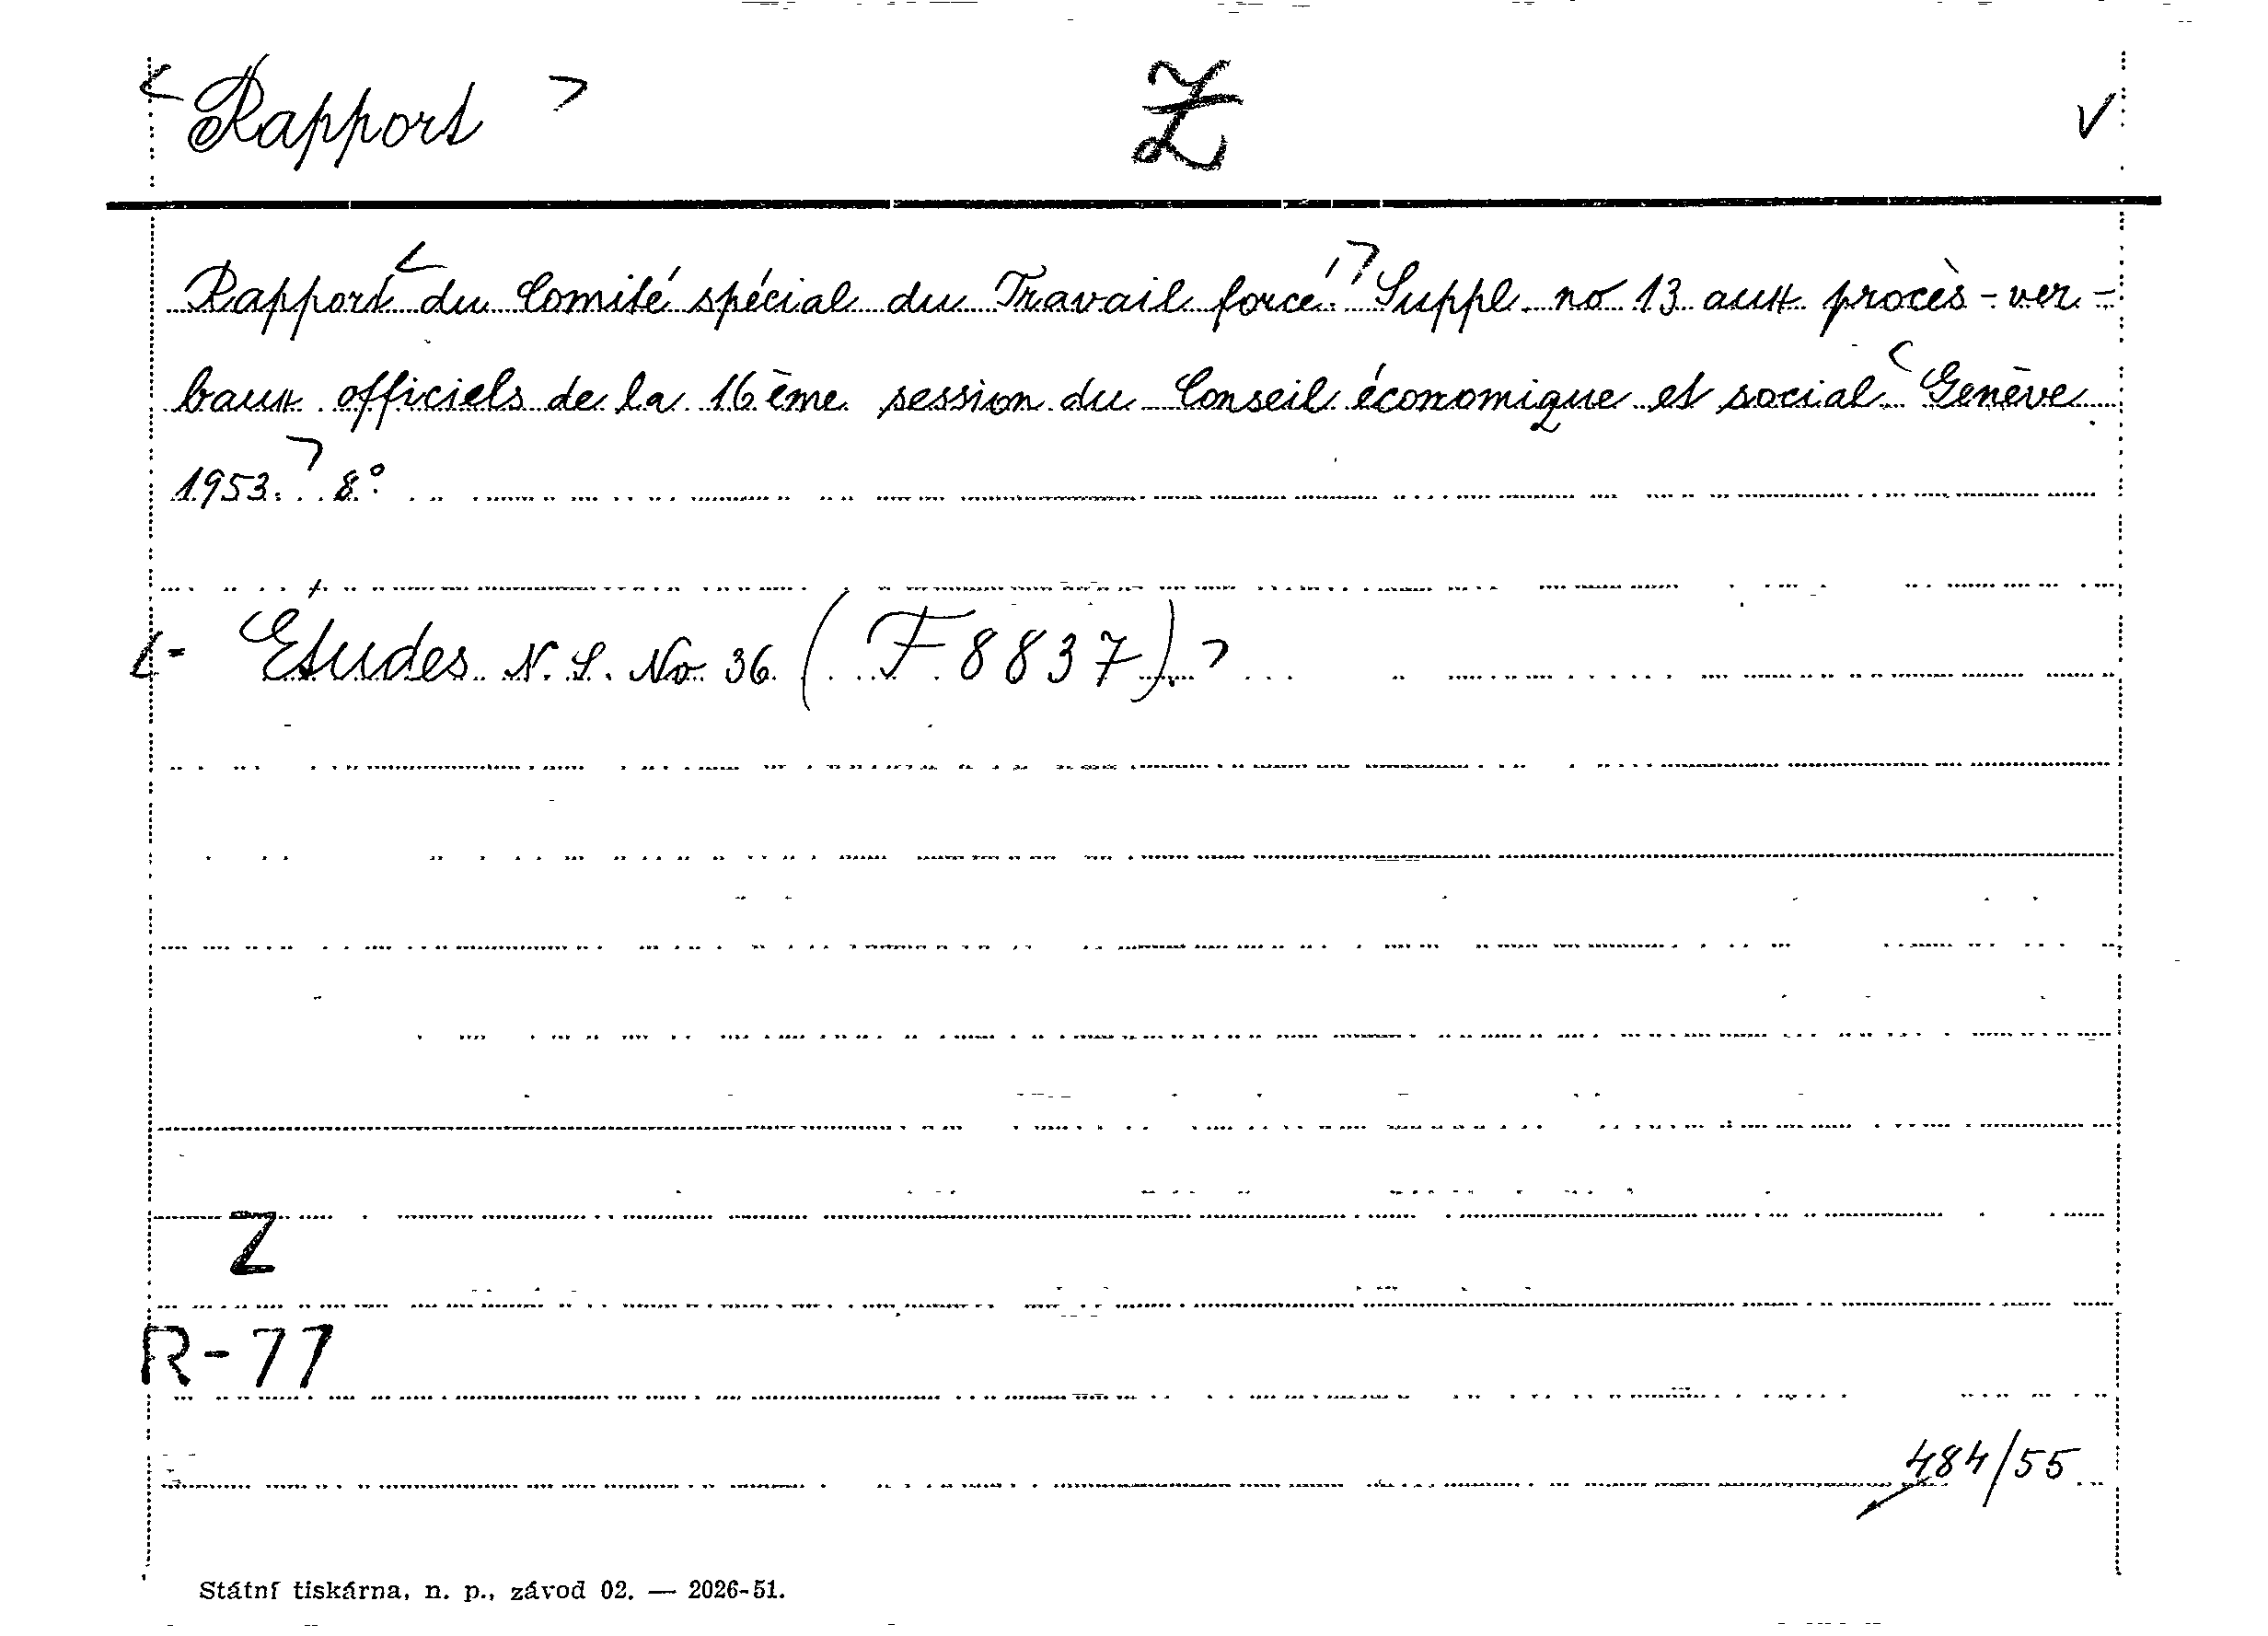 < Rapport > Z V
Rapport < du Comité spécial du Travail forcé. > Suppl. no 13 aux procès-ver-
baux officiels de la 16ème session du Conseil économique et social. < Genève
1953. > 8°.
<= Études N. S. No 36. ( F 8837 ). >
Z
R-77
484/55
Státní tiskárna, n. p., závod 02. — 2026-51.